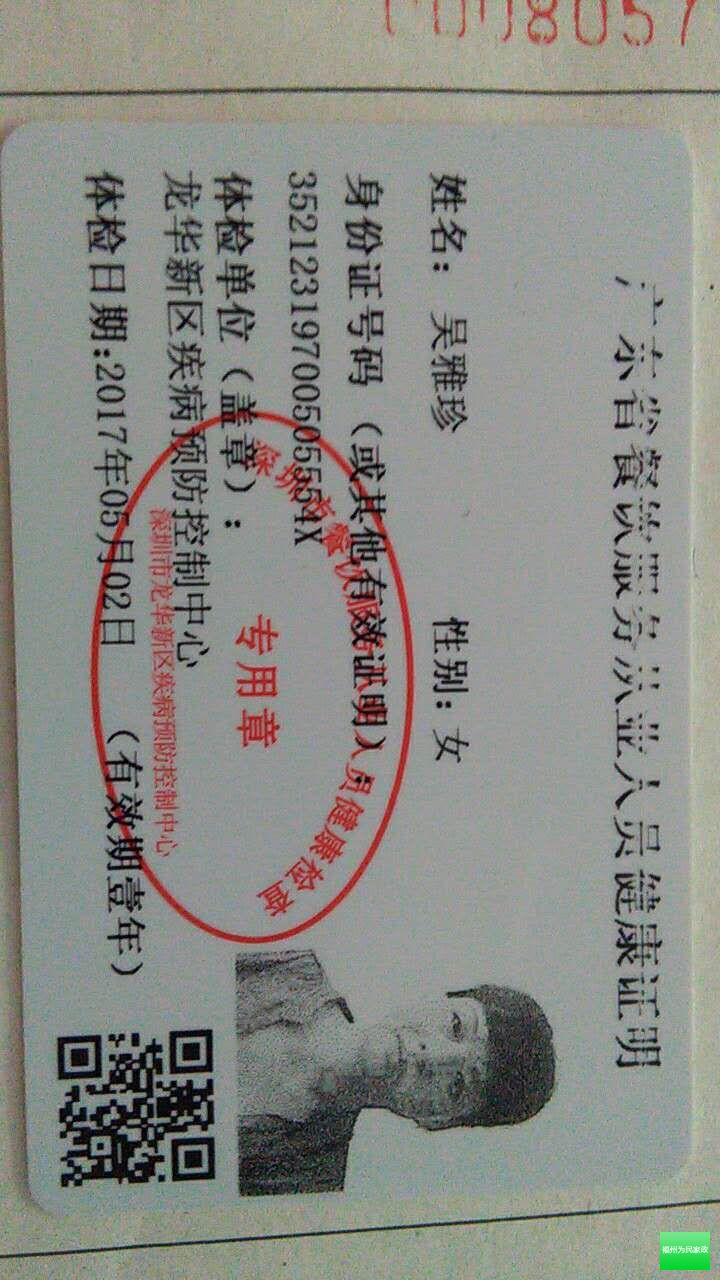 广东省餐饮服务从业人员健康证明
姓名：吴雅珍 性别：女
身份证号码（或其他有效证明）：
35212319700505554X
体检单位（盖章）：
龙华新区疾病预防控制中心
体检日期:2017年05月02日 （有效期壹年）
深圳市餐饮服务从业人员健康检查
专用章
深圳市龙华新区疾病预防控制中心
福州为民家政